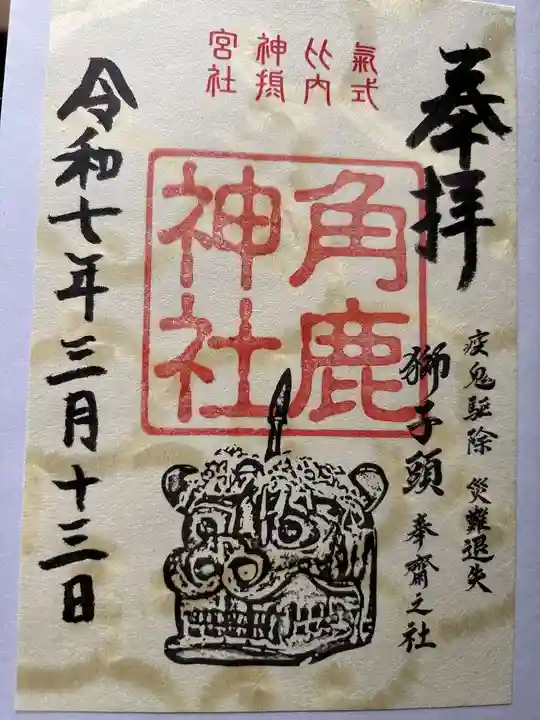 奉拝
疫鬼駆除 災難退失
獅子頭 奉齋之社
式内
氣比神宮
摂社
角鹿
神社
令和七年三月十三日